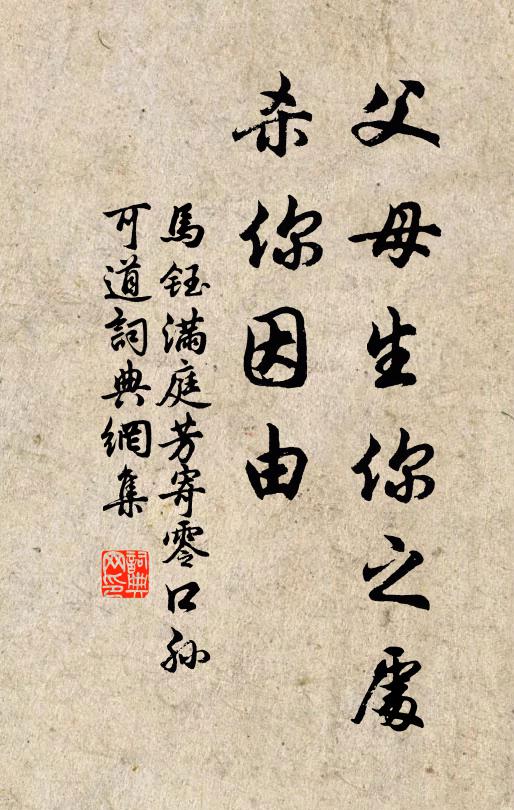 父母生你之處
杀你因由
馬鈺滿庭芳寄零口孙
可道詞典網集
詞典
网印